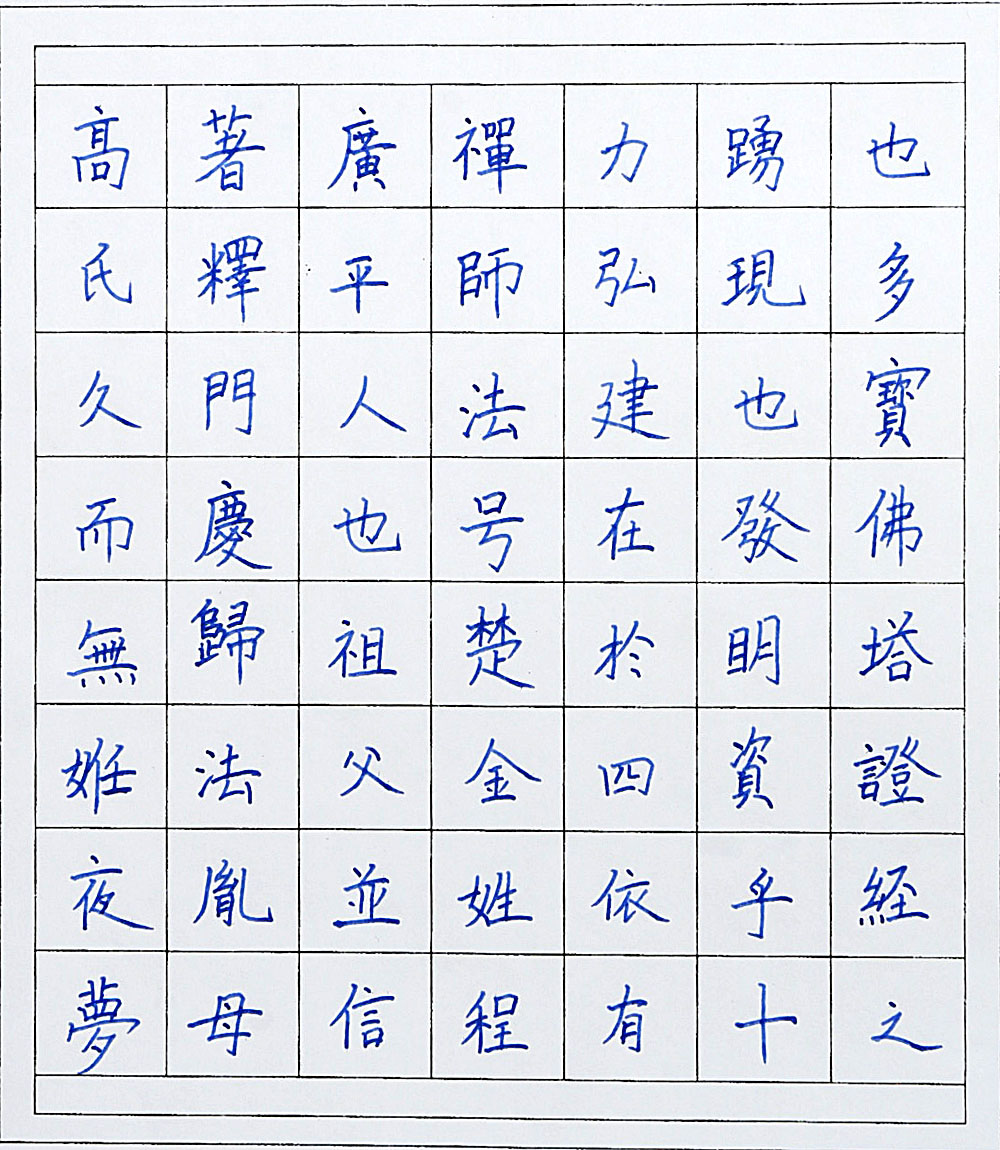 也多寶佛塔證経之
踴現也發明資乎十
力弘建在於四依有
禪師法号楚金姓程
廣平人也祖父並信
著釋門慶歸法胤母
高氏久而無姙夜夢